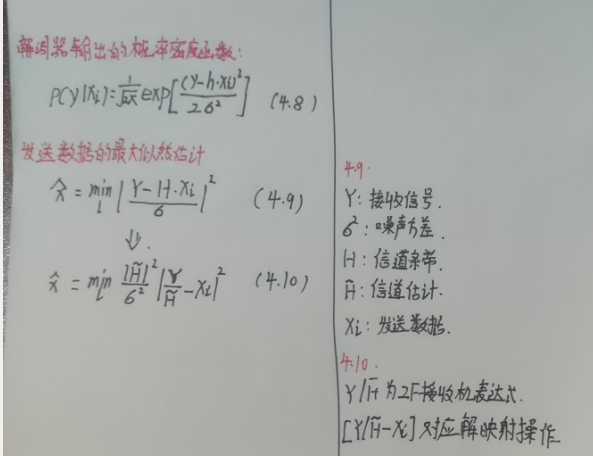 解调器输出的概率密度函数:
P(y|xi)=1/√2π exp[(y-h·xi)²/2σ²] (4.8)
发送数据的最大似然估计
x̂ = min i |Y-H·Xi/σ|² (4.9)
⇓.
x̂ = min i |H̃|²/σ² |Y/H̃-Xi|² (4.10)
4.9.
Y: 接收信号.
σ²: 噪声方差.
H: 信道条带.
H̃: 信道估计.
Xi: 发送数据.
4.10.
Y/H̃ 为ZF接收机表达式.
[Y/H̃-Xi] 对应解映射操作